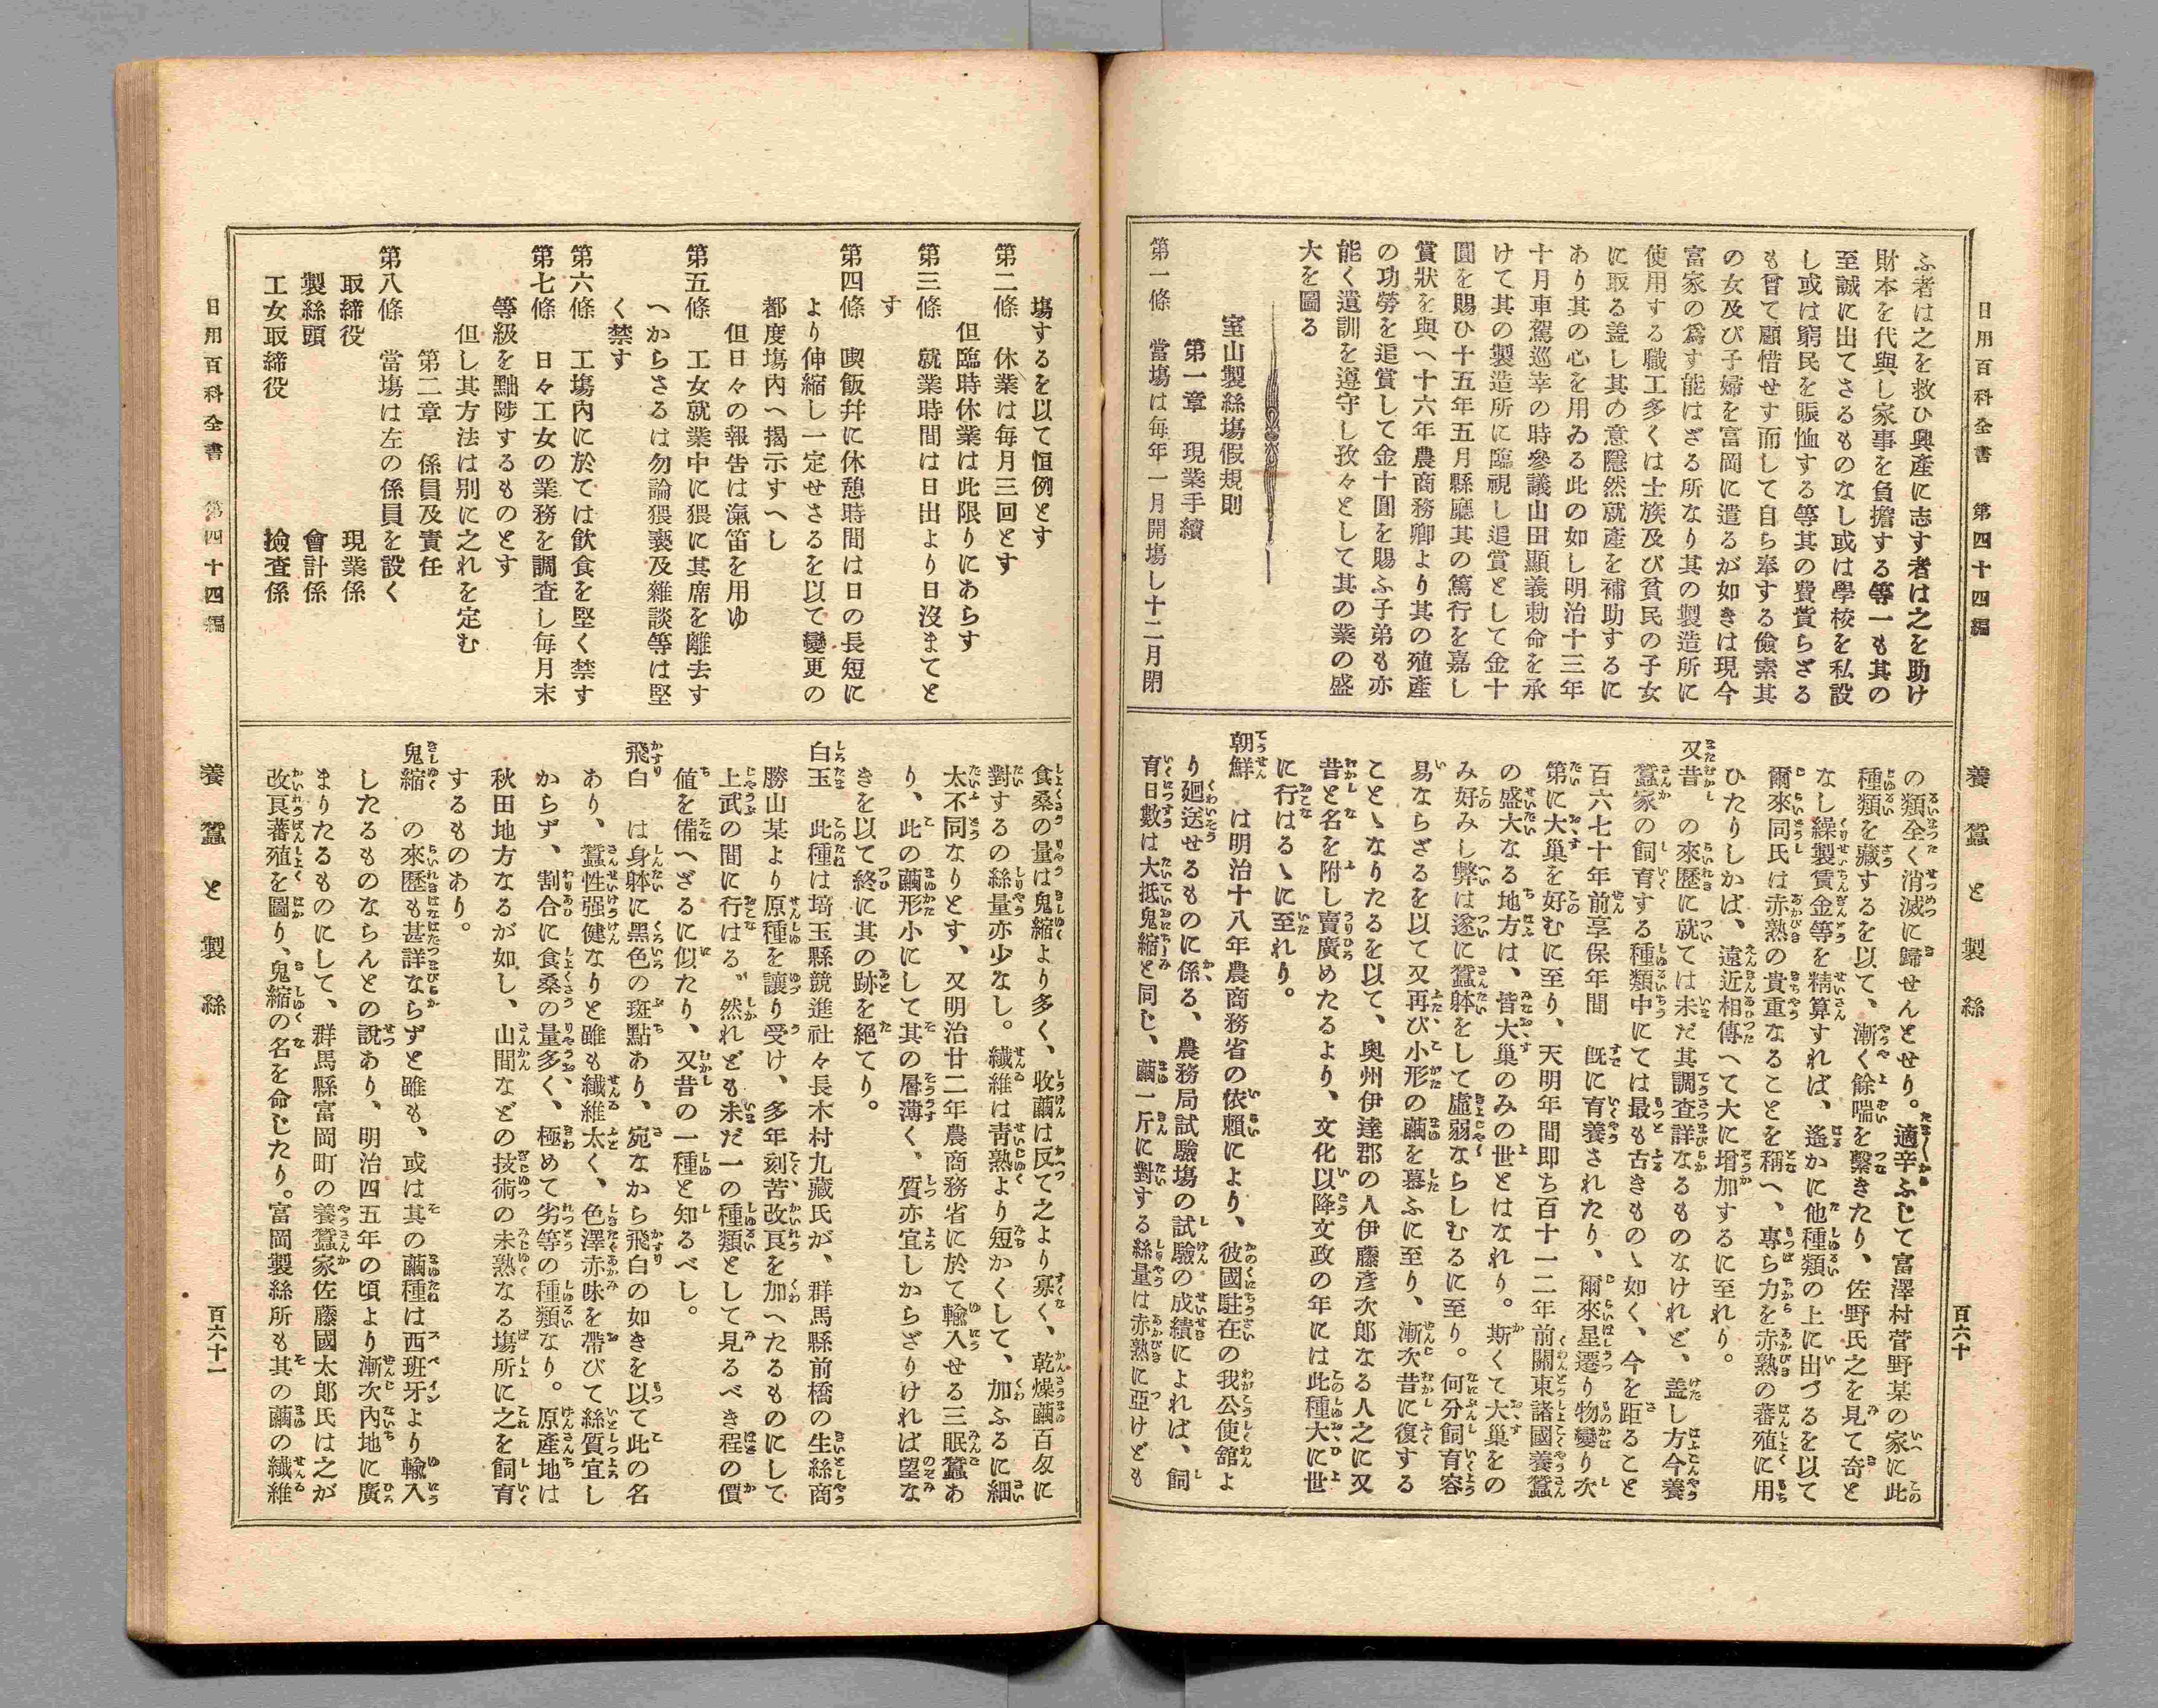 日用百科全書　第四十四編
養蠶と製絲
百六十
ふ者は之を救ひ興產に志す者は之を助け
財本を代與し家事を負擔する等一も其の
至誠に出てさるものなし或は學校を私設
し或は窮民を賑恤する等其の費貲らざる
も曾て顧惜せす而して自ら奉する儉素其
の女及び子婦を富岡に遣るが如きは現今
富家の爲す能はざる所なり其の製造所に
使用する職工多くは士族及び貧民の子女
に取る盖し其の意隱然就產を補助するに
あり其の心を用ゐる此の如し明治十三年
十月車駕巡幸の時參議山田顯義勅命を承
けて其の製造所に臨視し追賞として金十
圓を賜ひ十五年五月縣廳其の篤行を嘉し
賞狀を與へ十六年農商務卿より其の殖產
の功勞を追賞して金十圓を賜ふ子弟も亦
能く遺訓を遵守し孜々として其の業の盛
大を圖る
室山製絲塲假規則
第一章　現業手續
第一條　當塲は每年一月開塲し十二月閉
の類全く消滅に歸せんとせり。適辛ふじて富澤村菅野某の家に此
種類を藏するを以て、漸く餘喘を繫きたり、佐野氏之を見て奇と
なし繰製賃金等を精算すれば、遙かに他種類の上に出づるを以て
爾來同氏は赤熟の貴重なることを稱へ、專ら力を赤熟の蕃殖に用
ひたりしかば、遠近相傳へて大に增加するに至れり。
又昔　の來歷に就ては未だ其調査詳なるものなけれど、盖し方今養
蠶家の飼育する種類中にては最も古きものゝ如く、今を距ること
百六七十年前享保年間　旣に育養されたり、爾來星遷り物變り次
第に大巢を好むに至り、天明年間即ち百十一二年前關東諸國養蠶
の盛大なる地方は、皆大巢のみの世とはなれり。斯くて大巢をの
み好みし弊は遂に蠶躰をして虛弱ならしむるに至り。何分飼育容
易ならざるを以て又再び小形の繭を慕ふに至り、漸次昔に復する
ことゝなりたるを以て、奧州伊達郡の人伊藤彥次郎なる人之に又
昔と名を附し賣廣めたるより、文化以降文政の年には此種大に世
に行はるゝに至れり。
朝鮮　は明治十八年農商務省の依賴により、彼國駐在の我公使舘よ
り廻送せるものに係る、農務局試驗塲の試驗の成績によれば、飼
育日數は大抵鬼縮と同じ、繭一斤に對する絲量は赤熟に亞けども
塲するを以て恒例とす
第二條　休業は每月三回とす
但臨時休業は此限りにあらす
第三條　就業時間は日出より日沒まてと
す
第四條　喫飯幷に休憩時間は日の長短に
より伸縮し一定せさるを以て變更の
都度塲內へ揭示すへし
但日々の報吿は滊笛を用ゆ
第五條　工女就業中に猥に其席を離去す
へからさるは勿論猥褻及雜談等は堅
く禁す
第六條　工塲內に於ては飮食を堅く禁す
第七條　日々工女の業務を調査し每月末
等級を黜陟するものとす
但し其方法は別に之れを定む
第二章　係員及責任
第八條　當塲は左の係員を設く
取締役　現業係
製絲頭　會計係
工女取締役　撿査係
食桑の量は鬼縮より多く、收繭は反て之より寡く、乾燥繭百匁に
對するの絲量亦少なし。纎維は靑熟より短かくして、加ふるに細
太不同なりとす、又明治廿二年農商務省に於て輸入せる三眠蠶あ
り、此の繭形小にして其の層薄く、質亦宜しからざりければ望な
きを以て終に其の跡を絕てり。
白玉　此種は埼玉縣競進社々長木村九藏氏が、群馬縣前橋の生絲商
勝山某より原種を讓り受け、多年刻苦改良を加へたるものにして
上武の間に行はる〃然れども未だ一の種類として見るべき程の價
値を備へざるに似たり、又昔の一種と知るべし。
飛白　は身躰に黑色の斑點あり、宛なから飛白の如きを以て此の名
あり、蠶性强健なりと雖も纎維太く、色澤赤味を帶びて絲質宜し
からず、割合に食桑の量多く、極めて劣等の種類なり。原產地は
秋田地方なるが如し、山間などの技術の未熟なる塲所に之を飼育
するものあり。
鬼縮　の來歷も甚詳ならずと雖も、或は其の繭種は西班牙より輸入
したるものならんとの說あり、明治四五年の頃より漸次內地に廣
まりたるものにして、群馬縣富岡町の養蠶家佐藤國太郎氏は之が
改良蕃殖を圖り、鬼縮の名を命じたり。富岡製絲所も其の繭の纎維
日用百科全書　第四十四編
養蠶と製絲
百六十一